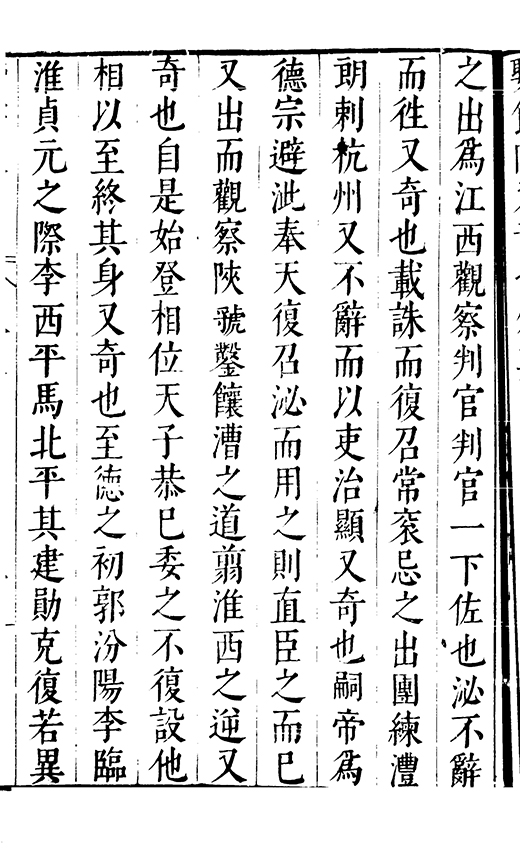 之出爲江西觀察判官判官一下佐也泌不辭
而徃又奇也載誅而復召常衮忌之出團練澧
朗刺杭州又不辭而以吏治顯又奇也嗣帝爲
德宗避泚奉天復召泌而用之則直臣之而已
又出而觀察陝虢鑿饟漕之道翦淮西之逆又
奇也自是始登相位天子恭已委之不復設他
相以至終其身又奇也至德之初郭汾陽李臨
淮貞元之際李西平馬北平其建勛克復若異